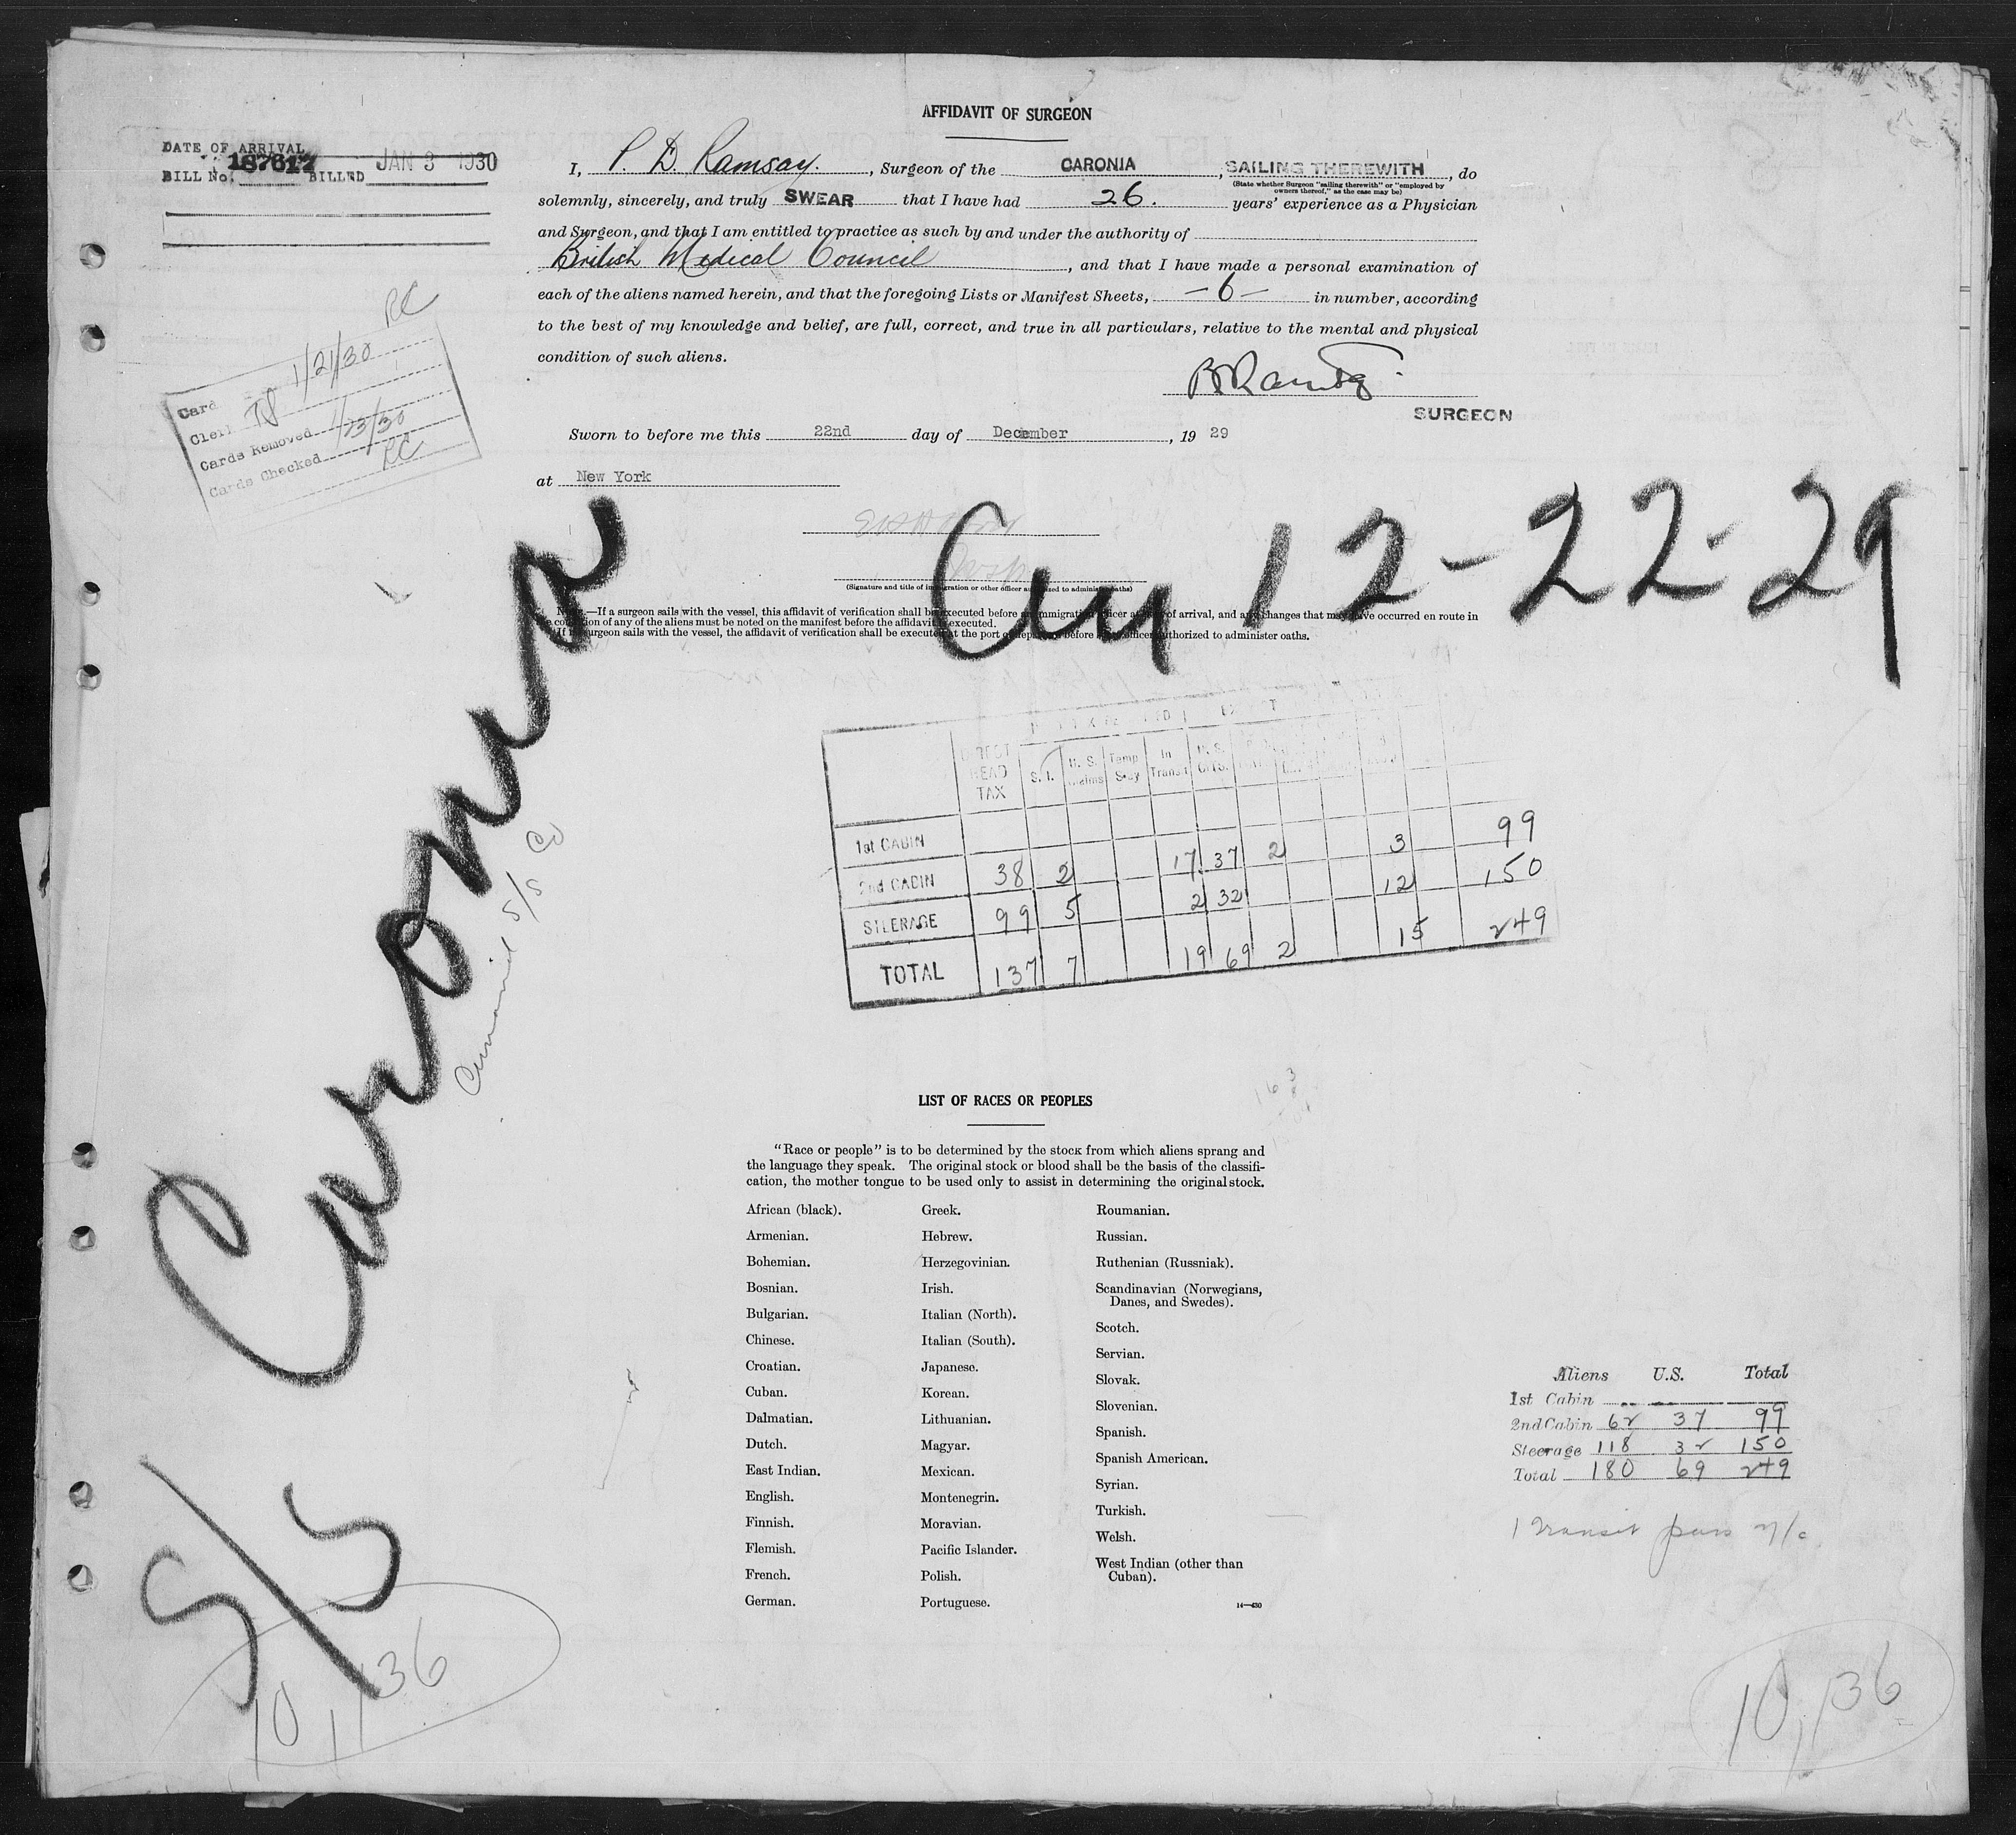 AFFIDAVIT OF SURGEON
DATE OF ARRIVAL
BILL No. 187617 BILLED JAN 3 1930
I, P. D. Ramsay., Surgeon of the CARONIA, SAILING THEREWITH, do
(State whether Surgeon "sailing therewith" or "employed by
owners thereof," as the case may be)
solemnly, sincerely, and truly SWEAR that I have had 26. years' experience as a Physician
and Surgeon, and that I am entitled to practice as such by and under the authority of
British Medical Council, and that I have made a personal examination of
each of the aliens named herein, and that the foregoing Lists or Manifest Sheets, -6- in number, according
to the best of my knowledge and belief, are full, correct, and true in all particulars, relative to the mental and physical
condition of such aliens.
SURGEON
RC
Card 1/21/30
Clerk
Cards Removed 1/23/30
Cards Checked RC
Sworn to before me this 22nd day of December, 19 29
at New York
(Signature and title of immigration or other officer authorized to administer oaths)
12-22-29
Note.—If a surgeon sails with the vessel, this affidavit of verification shall be executed before an immigration officer at of arrival, and any changes that may have occurred en route in
condition of any of the aliens must be noted on the manifest before the affidavit is executed.
If surgeon sails with the vessel, the affidavit of verification shall be executed at the port of departure before officer authorized to administer oaths.
S/S Caronia
Cunard S/S Co
DIRECT HEAD TAX S. I. U. S. Temp Stay In Transit U. S. Citz.
1st CABIN
2nd CABIN 38 2 17 37 2 3 99
STEERAGE 99 5 2 32 12 150
TOTAL 137 7 19 69 2 15 249
LIST OF RACES OR PEOPLES
"Race or people" is to be determined by the stock from which aliens sprang and
the language they speak. The original stock or blood shall be the basis of the classifi-
cation, the mother tongue to be used only to assist in determining the original stock.
African (black).
Armenian.
Bohemian.
Bosnian.
Bulgarian.
Chinese.
Croatian.
Cuban.
Dalmatian.
Dutch.
East Indian.
English.
Finnish.
Flemish.
French.
German.
Greek.
Hebrew.
Herzegovinian.
Irish.
Italian (North).
Italian (South).
Japanese.
Korean.
Lithuanian.
Magyar.
Mexican.
Montenegrin.
Moravian.
Pacific Islander.
Polish.
Portuguese.
Roumanian.
Russian.
Ruthenian (Russniak).
Scandinavian (Norwegians,
Danes, and Swedes).
Scotch.
Servian.
Slovak.
Slovenian.
Spanish.
Spanish American.
Syrian.
Turkish.
Welsh.
West Indian (other than
Cuban).
14—430
Aliens U.S. Total
1st Cabin
2nd Cabin 62 37 99
Steerage 118 32 150
Total 180 69 249
1 Transit pass
10,136
10,136